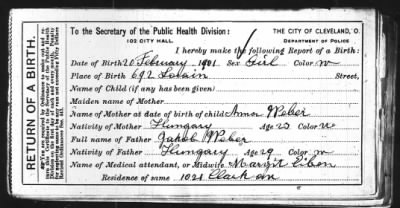 To the Secretary of the Public Health Division:
102 CITY HALL.
THE CITY OF CLEVELAND, O.
DEPARTMENT OF POLICE.
I hereby make the following Report of a Birth:
Date of Birth 20 February, 1901 Sex Girl Color w
Place of Birth 692 Lorain Street,
Name of Child (if any has been given)
Maiden name of Mother
Name of Mother at date of birth of child Anna Weber
Nativity of Mother Hungary Age 23 Color w
Full name of Father Jakob Weber
Nativity of Father Hungary Age 29 Color w
Name of Medical attendant, or Midwife Margit Cibon
Residence of name 1021 Clark av
RETURN OF A BIRTH.